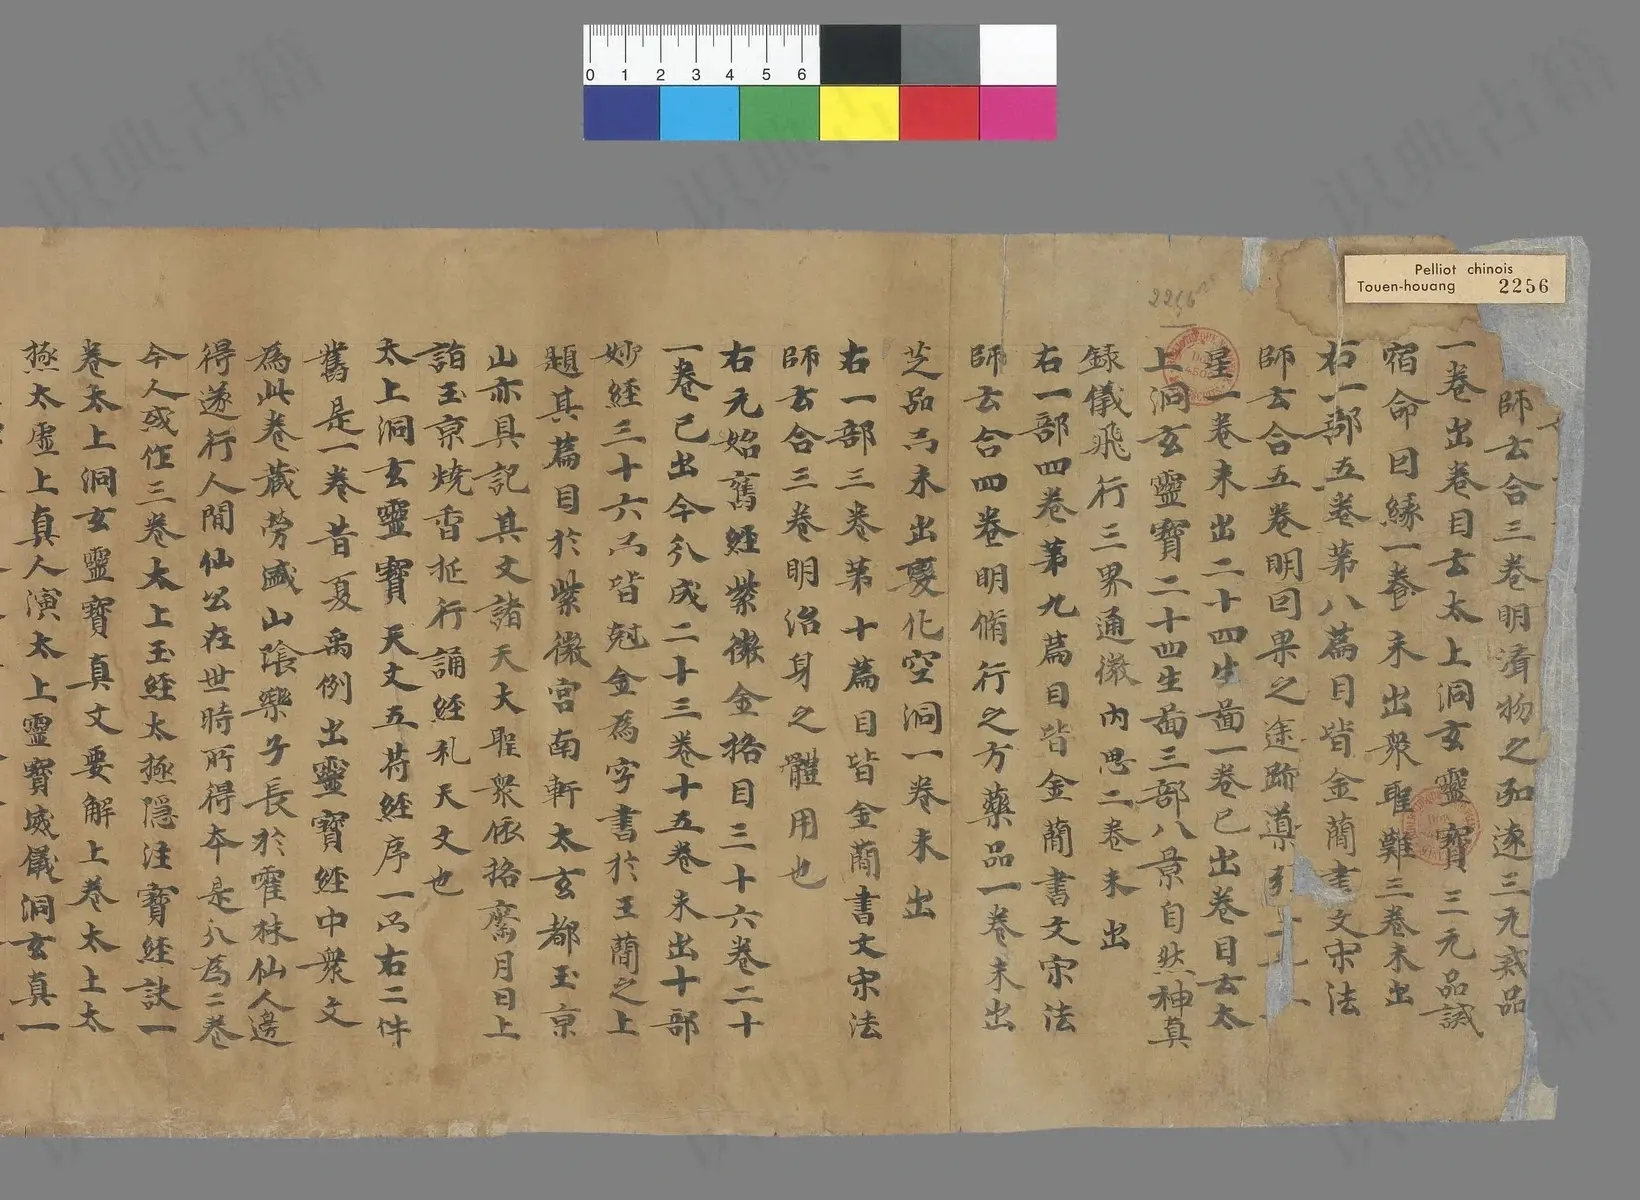 師云合三卷明濟物之弘遠三元戒品
一卷出卷目云太上洞玄靈寶三元品誡
宿命因緣一卷未出衆聖難三卷未出
右一部五卷第八篇目皆金蕳書文宋法
師云合五卷明因果之途跡導
星一卷未出二十四生啚一卷已出卷目云太
上洞玄靈寶二十四生啚三部八景自然神真
録儀飛行三界通徽内思二卷未出
右一部四卷第九篇目皆金蕳書文宋法
師云合四卷明脩行之方藥品一卷未出
芝品一卷未出變化空洞一卷未出
右一部三卷第十篇目皆金蕳書文宋法
師云合三卷明治身之體用也
右元始舊經紫微金格目三十六卷二十
一卷已出今分成二十三卷十五卷未出十部
妙經三十六卷皆尅金爲字書於玉蕳之上
題其篇目於紫微宫南軒太玄都玉京
山亦具記其文諸天大聖衆依格齋月日上
詣玉京燒香挻行誦經礼天文也
太上洞玄靈寶天文五苻經序一卷右二件
舊是一卷昔夏禹例出靈寶經中衆文
爲此卷藏勞盛山隂樂子長於霍林仙人邊
得遂行人閒仙公在世時所得本是分爲二卷
今人或作三卷太上玉經太極隱注寶經訣一
卷太上洞玄靈寶真文要解上卷太上太
極太虚上真人演太上靈寶威儀洞玄真一
Pelliot chinois
Touen-houang 2256
2256
0 1 2 3 4 5 6
识典古籍